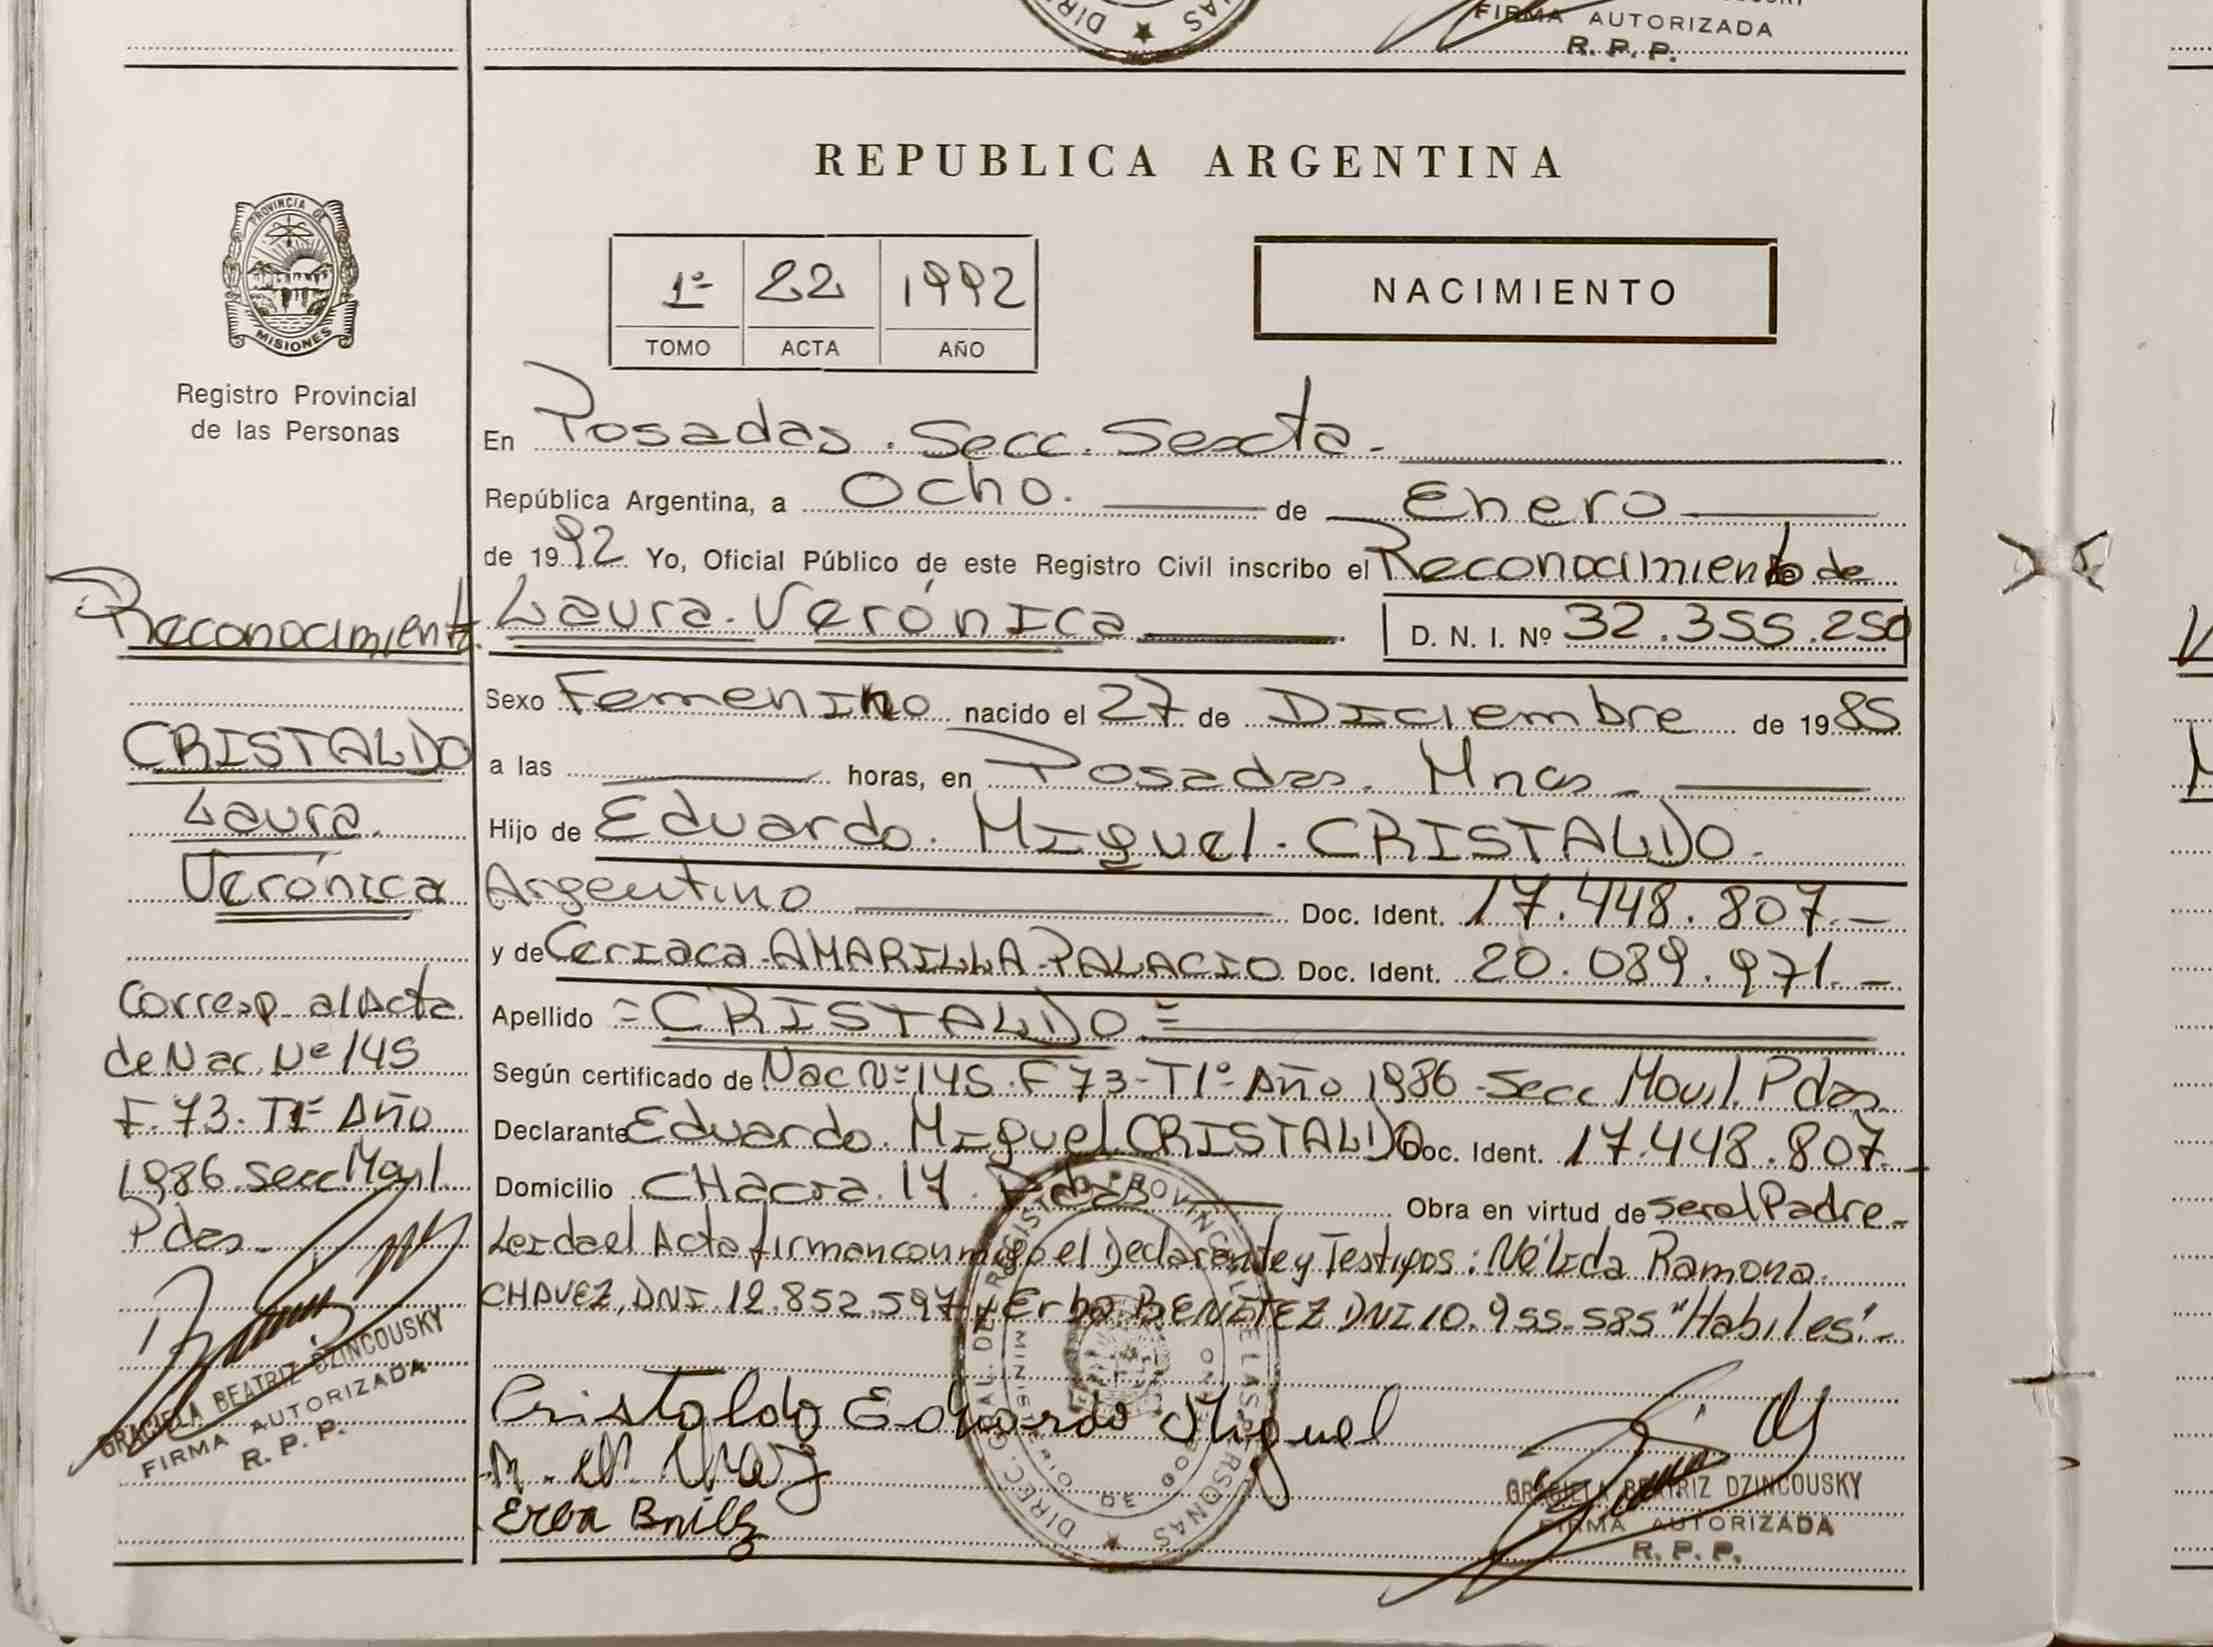 FIRMA AUTORIZADA
R. P. P.
PROVINCIA DE
MISIONES
Registro Provincial
de las Personas
Reconocimiento.
CRISTALDO
Laura
Verónica
Corresp. al Acta
de Nac. Nº 145
F. 73. T1º Año
1986. Secc Movil
Pdas.
GRACIELA BEATRIZ DZINCOUSKY
FIRMA AUTORIZADA
R. P. P.
REPUBLICA ARGENTINA
1º 22 1992
TOMO ACTA AÑO
NACIMIENTO
En Posadas. Secc. Sexta.
República Argentina, a Ocho. de Enero
de 1992. Yo, Oficial Público de este Registro Civil inscribo el Reconocimiento de
Laura. Verónica D. N. I. Nº 32.355.250
Sexo Femenino nacido el 27 de Diciembre de 1985
a las horas, en Posadas. Mnes
Hijo de Eduardo. Miguel. CRISTALDO.
Argentino Doc. Ident. 17.448.807.-
y de Ceriaca AMARILLA PALACIO Doc. Ident. 20.089.971.-
Apellido = CRISTALDO =
Según certificado de Nac Nº 145. F 73- T1º Año 1986. Secc Movil. Pdas.
Declarante Eduardo. Miguel CRISTALDO Doc. Ident. 17.448.807.-
Domicilio CHacra. 17. Pdas Obra en virtud de ser el Padre-
Leida el Acta firman conmigo el Declarante y Testigos: Nélida Ramona.
CHAVEZ, DNI 12.852.597 y Erba BENITEZ DNI 10.955.585 "Habiles".-
Cristaldo Eduardo Miguel
GRACIELA BEATRIZ DZINCOUSKY
FIRMA AUTORIZADA
R. P. P.